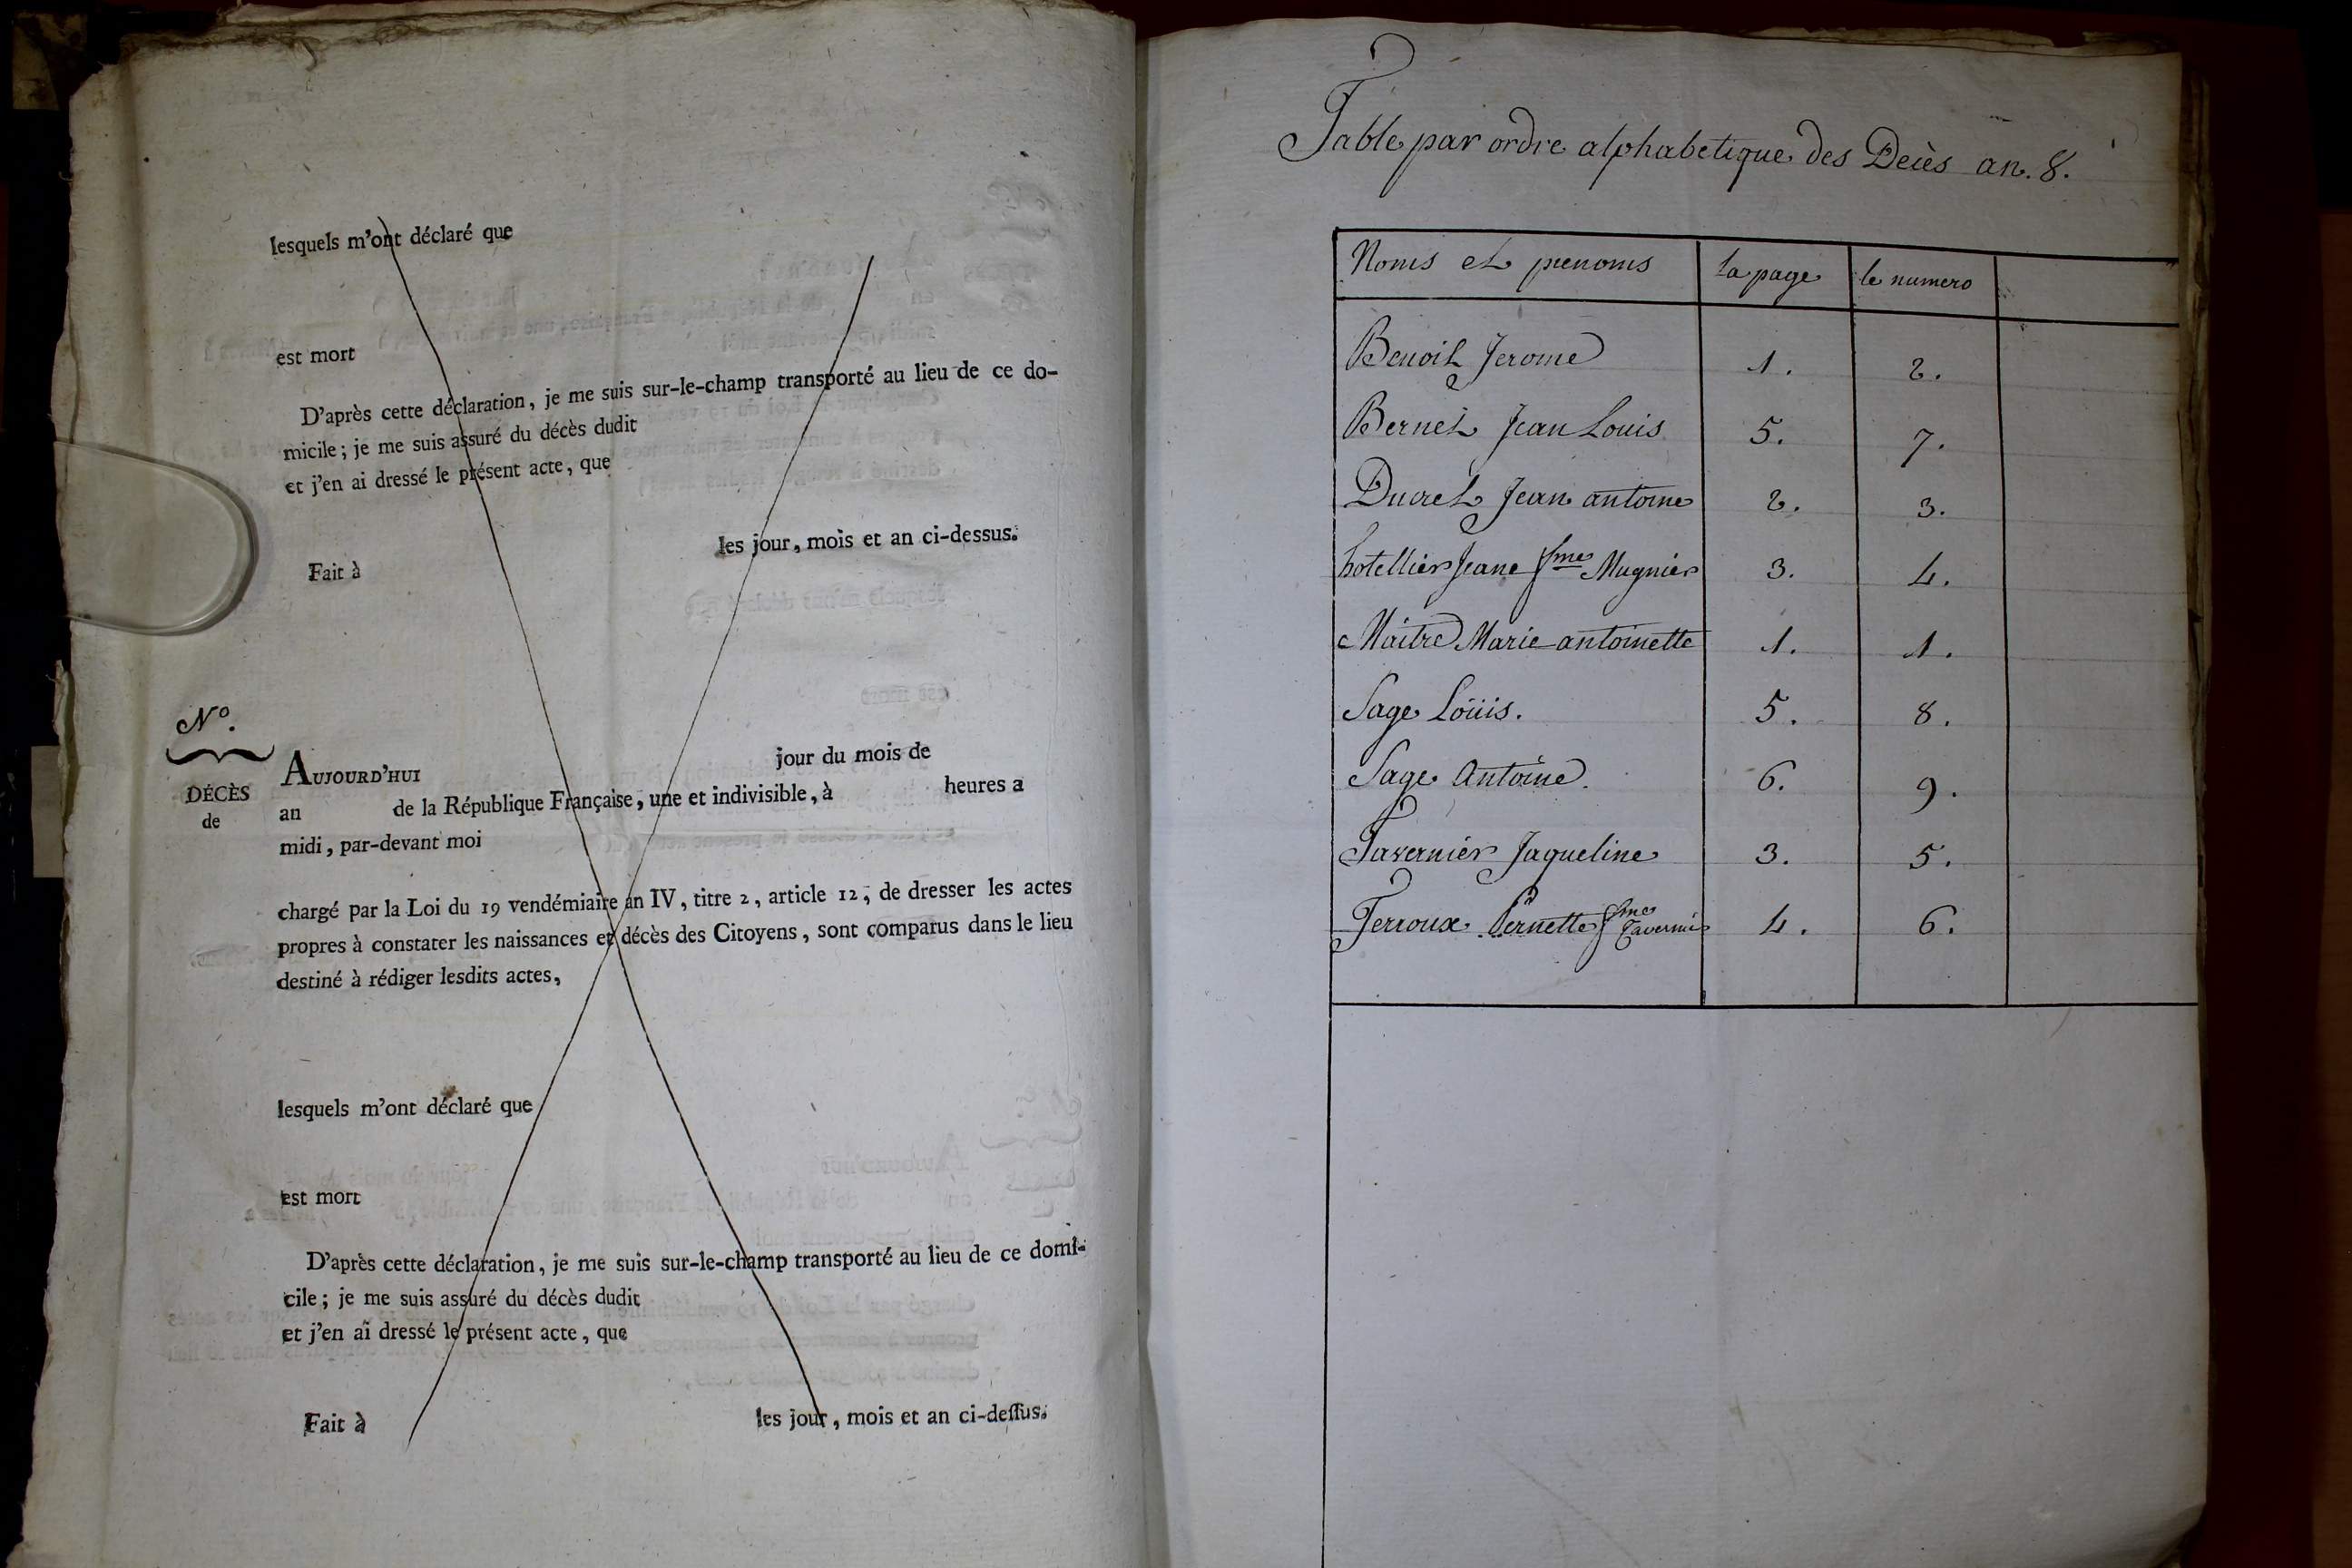 lesquels m'ont déclaré que
est mort
D'après cette déclaration, je me suis sur-le-champ transporté au lieu de ce do-
micile; je me suis assuré du décès dudit
et j'en ai dressé le présent acte, que
les jour, mois et an ci-dessus.
Fait à
N°.
DÉCÈS
de
AUJOURD'HUI jour du mois de
an de la République Française, une et indivisible, à heures a
midi, par-devant moi
chargé par la Loi du 19 vendémiaire an IV, titre 2, article 12, de dresser les actes
propres à constater les naissances et décès des Citoyens, sont comparus dans le lieu
destiné à rédiger lesdits actes,
lesquels m'ont déclaré que
est mort
D'après cette déclaration, je me suis sur-le-champ transporté au lieu de ce domi-
cile; je me suis assuré du décès dudit
et j'en ai dressé le présent acte, que
Fait à les jour, mois et an ci-deſſus.
Table par ordre alphabetique des Decès an. 8.
Noms et prenoms la page le numero
Benoit Jerome 1. 2.
Bernet Jean Louis 5. 7.
Ducret Jean antoine 2. 3.
hotellier Jeane fme Mugnier 3. 4.
Maitre Marie antoinette 1. 1.
Sage Loüis. 5. 8.
Sage Antoine. 6. 9.
Tavernier Jaqueline 3. 5.
Terroux Pernette fme Tavernier 4. 6.